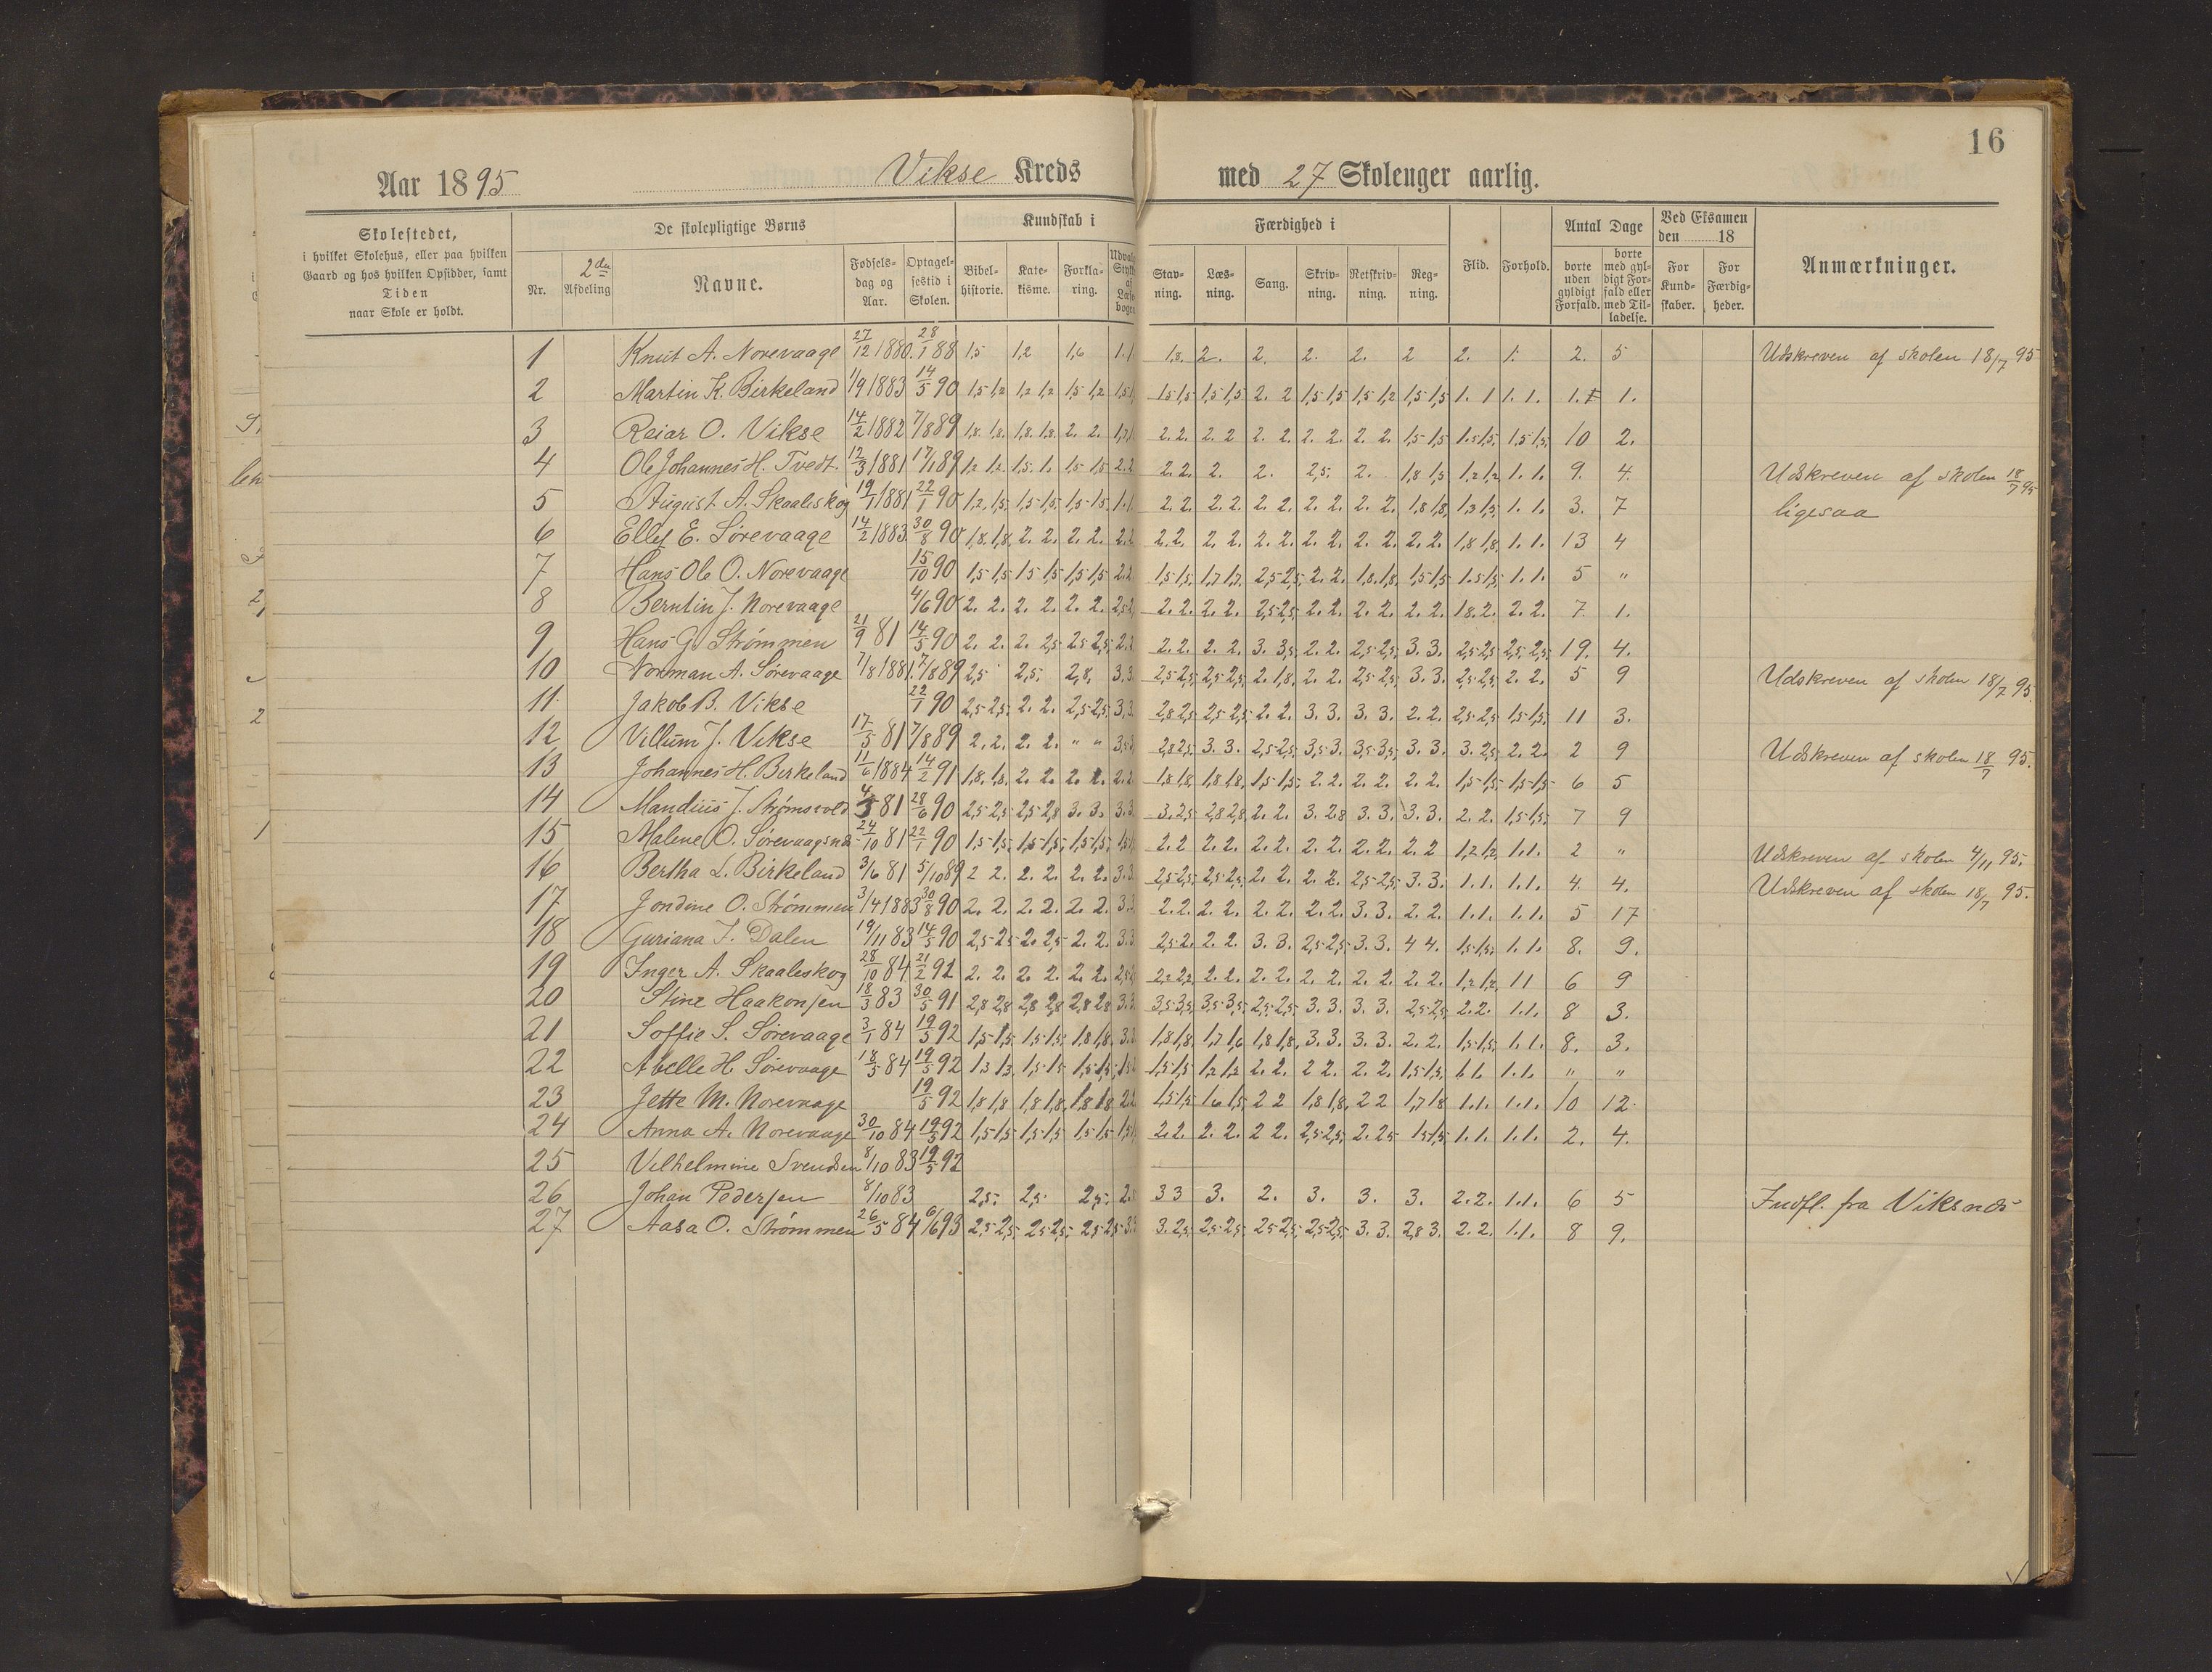 16
Aar 1895 Vikse Kreds med 27 Skoleuger aarlig.
Skolestedet, i hvilket Skolehus, eller paa hvilken Gaard og hos hvilken Opsidder, samt Tiden naar Skole er holdt.
De skolepligtige Børns
Nr. 2den Afdeling Navne. Fødselsdag og Aar. Optagelsestid i Skolen.
Kundskab i
Bibelhistorie. Katekisme. Forklaring.
Færdighed i
Stavning. Læsning. Sang. Skrivning. Retskrivning. Regning.
Flid. Forhold.
Antal Dage
borte uden gyldigt Forfald. borte med gyldigt Forfald eller med Tilladelse.
Ved Eksamen den 18
For Kundskaber. For Færdigheder.
Anmærkninger.
1 Knut A. Norevaage 27/12 1880. 28/1 88 1,5 1,2 1,6 1.1 1,8. 2. 2. 2. 2. 2 2. 1. 2. 5 Udskreven af skolen 18/7 95
2 Martin K. Birkeland 1/9 1883 14/5 90 1,5 1,2 1,2 1,2 1,5 1,2 1,5 1,5 1,5 1,5 2. 2 1,5 1,5 1,5 1,2 1,5 1,5 1. 1 1. 1. 1. 1.
3 Reiar O. Vikse 14/2 1882 7/8 89 1,8. 1,8. 1,8. 1,8. 2. 2. 2. 2. 2. 2 2. 2. 2. 2. 2. 2. 1,5 1,5 1,5 1,5 1,5 1,5 10 2.
4 Ole Johannes H. Tvedt. 12/3 1881 17/1 89 1,2 1,2. 1,5. 1. 1,5 1,5 2.2 2. 2. 2. 2. 2,5. 2. 1,8 1,5 1,2 1,2 1. 1. 9. 4. Udskreven af skolen 18/7 95
5 August A. Skaaleskog 19/1 1881 22/1 90 1,2. 1,5. 1,5 1,5. 1,5 1,5. 1.1 2. 2. 2. 2. 2. 2. 2. 2. 2. 2. 1,8 1,8 1,3 1,5. 1. 1. 3. 7 ligesaa
6 Ellef E. Sørevaage 14/2 1883. 30/8 90 1,8. 1,8. 2. 2. 2. 2. 2.2 2. 2. 2. 2. 2. 2. 2. 2. 2. 2. 2. 2. 1,8 1,8 1. 1. 13 4
7 Hans Ole O. Norevaage 15/10 90 1,5 1,5 1,5 1,5 1,5 1,5 2.2 1,5 1,5. 1,7 1,7. 2,5 2,5. 2. 2. 1,8. 1,8. 1,5 1,5 1,5 1,5. 1. 1. 5 "
8 Berntin J. Norevaage 4/6 90 2. 2. 2. 2. 2. 2. 2. 2. 2. 2. 2,5 2,5. 2. 2. 2. 2. 2. 2. 1,8. 2. 2. 2. 7. 1.
9 Hans G. Strømmen 21/9 81 14/5 90 2. 2. 2. 2,5 2,5 2,5. 2.2 2. 2. 2. 2. 3. 3,5. 2. 2. 2,5 2,5. 3. 3. 2,5 2,5 2,5. 2,5. 19. 4.
10 Norman A. Sørevaage 7/8 1881. 7/8 89 2,5 2,5. 2,8. 3.3 2,5 2,5. 2,5 2,5. 2. 1,8. 2. 2. 2,5 2,5. 3. 3. 2,5 2,5. 2. 2. 5 9 Udskreven af skolen 18/7 95
11 Jakob B. Vikse 22/1 90 2,5 2,5. 2. 2. 2,5 2,5. 3.3 2,8 2,5. 2,5 2,5. 2. 2. 3. 3. 3. 3. 2. 2. 2,5 2,5 1,5 1,5. 11 3.
12 Villum J. Vikse 17/5 81 7/8 89 2. 2. 2. 2. " " 2,8 2,5. 3. 3. 2,5 2,5. 3,5 3. 3,5 3,5. 3. 3. 3. 2,5. 2. 2. 2 9 Udskreven af skolen 18/7 95.
13 Johannes H. Birkeland 11/6 1884 14/2 91 1,8. 1,8. 2. 2. 2. 2. 2.2 1,8 1,8 1,8 1,8. 1,5 1,5. 2. 2. 2. 2. 2. 2. 1,5 1,5. 1,5 1,5 6 5
14 Mandius J. Strømsvold 4/3 81 28/6 90 2,5 2,5 2,5 2,8 3. 3. 3.3 3. 2,5 2,8 2,8. 2. 2. 3. 2,8 3. 3. 3. 3. 2. 2. 1,5 1,5. 7 9
15 Malene O. Sørevaagsnes 24/10 81 22/1 90 1,5 1,5. 1,5 1,5. 1,5 1,5. 2. 2 2. 2. 2. 2. 2. 2. 2. 2. 2. 2 1,2 1,2 1.1. 2 " Udskreven af skolen 4/11 95.
16 Bertha L. Birkeland 3/6 81 5/10 89 2 2. 2. 2. 2. 2. 3.3 2,5 2,5. 2,5 2,5. 2. 2. 2. 2. 2,5 2,5. 3. 3. 1. 1. 1. 1. 4. 4. Udskreven af skolen 18/7 95.
17 Jondine O. Strømmen 3/4 1883 30/8 90 2. 2. 2. 2. 2. 2. 3.3 2. 2. 2. 2. 2. 2. 2. 2. 3. 3. 2. 2. 1. 1. 1. 1. 5 17
18 Guriana J. Dalen 19/11 83 14/5 90 2,5 2,5 2. 2,5 2. 2. 3.3 2,5 2. 2. 2. 3. 3. 2,5 2,5 3. 3. 4 4. 1,5 1,5. 1. 1. 8. 9.
19 Inger A. Skaaleskog 28/10 84 21/2 92 2. 2. 2. 2. 2. 2. 2. 2,2 2. 2. 2. 2. 2. 2. 2. 2. 2. 2. 1,2 1,2 1 1 6 9
20 Stine Haakonsen 18/3 83 30/5 91 2,8 2,8 2,8 2,8 2,8 2,8 3.3 3,5 3,5. 3,5 3,5. 2,5 2,5. 3. 3. 3. 3. 2,5 2,5. 2. 2. 1. 1. 8 3.
21 Soffie S. Sørevaage 3/1 84 19/5 92 1,5 1,5. 1,5 1,5. 1,8 1,8. 3.3 1,8 1,8. 1,7 1,6 1,8 1,8. 3. 3. 3. 3. 2. 2. 1,5 1,5. 1. 1. 8. 3.
22 Abelle H. Sørevaage 18/5 84 19/5 92 1,3 1,3. 1,5 1,5 1,5 1,5. 1,5 1,5 1,2 1,2 2. 2. 2 2. 2. 2. 1,5 1,5. 1. 1. 1. 1. " "
23 Jette M. Norevaage 19/5 92 1,8 1,8 1,8 1,8. 1,8 1,8 2.2 1,5 1,5 1,6 1,5 2 2 1,8 1,8. 2 2 1,7 1,8 1. 1. 1. 1. 10 12.
24 Anna A. Norevaage 30/10 84 19/5 92 1,5 1,5 1,5 1,5 1,5 1,5 2. 2. 2. 2. 2 2. 2,5 2,5. 2. 2,5 1,5 1,5 1. 1. 1. 1. 2. 4.
25 Vilhelmine Svendsen 8/10 83 19/5 92
26 Johan Pedersen 8/10 83 2,5. 2,5. 2,5. 3 3 3. 2. 3. 3. 3. 2. 2. 1. 1. 6 5 Indfl. fra Viksnæs
27 Aasa O. Strømmen 26/5 84 6/6 93 2,5 2,5. 2,5 2,5. 2,5 2,5 3.3 3. 2,5. 2,5 2,5. 2,5 2,5. 2,5 2,5. 3. 3. 2,8 3. 2. 2. 1. 1. 8 9.